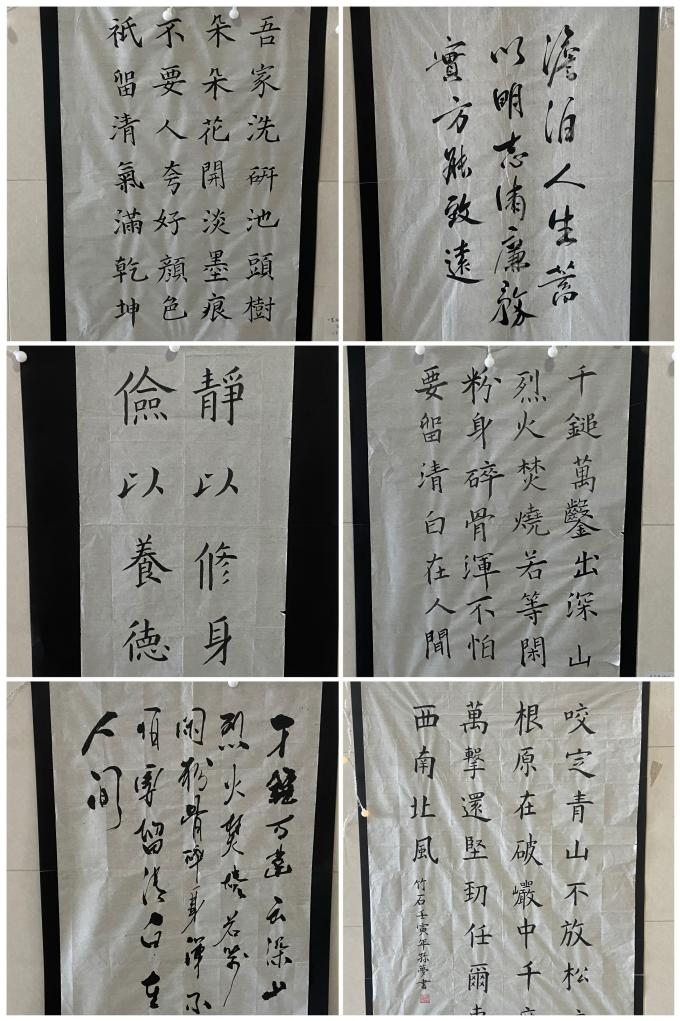 吾家洗研池頭樹
朵朵花開淡墨痕
不要人夸好顏色
祇留清氣滿乾坤
澹泊人生蓄
以明志清廉務
實方能致遠
靜以修身
儉以養德
千鎚萬鑿出深山
烈火焚燒若等閑
粉身碎骨渾不怕
要留清白在人間
千錘万鑿出深山
烈火焚燒若等
閑粉骨碎身渾不
怕要留清白在
人间
咬定青山不放松
根原在破巖中千
萬擊還堅劲任爾東
西南北風
竹石壬寅年孫夢書